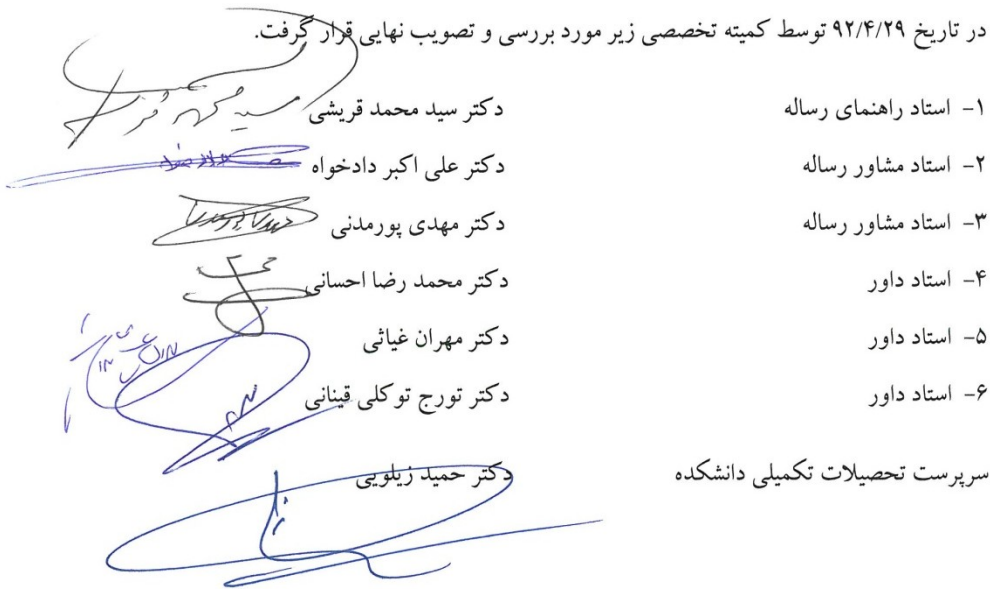 در تاریخ ۹۲/۴/۲۹ توسط کمیته تخصصی زیر مورد بررسی و تصویب نهایی قرار گرفت.
۱- استاد راهنمای رساله دکتر سید محمد قریشی
۲- استاد مشاور رساله دکتر علی اکبر دادخواه
۳- استاد مشاور رساله دکتر مهدی پورمدنی
۴- استاد داور دکتر محمد رضا احسانی
۵- استاد داور دکتر مهران غیاثی
۶- استاد داور دکتر تورج توکلی قینانی
سرپرست تحصیلات تکمیلی دانشکده دکتر حمید زیلویی